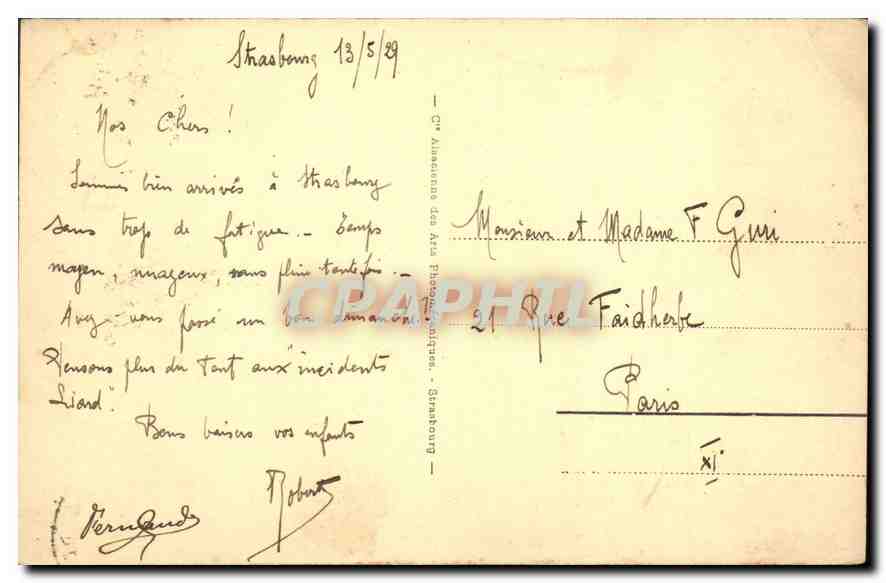 Strasbourg 13/5/29
Nos Chers !
Sommes bien arrivés à Strasbourg
sans trop de fatigue. - Temps
moyen, nuageux, sans pluie toutefois. -
Avez-vous passé un bon dimanche ?
Pensons plus du tout aux "incidents
Liard".
Bons baisers vos enfants
Robert
Fernande
— Cie Alsacienne des Arts Photomécaniques. - Strasbourg —
Monsieur et Madame F Guri
21 Rue Faidherbe
Paris
XIe
CPAPHIL